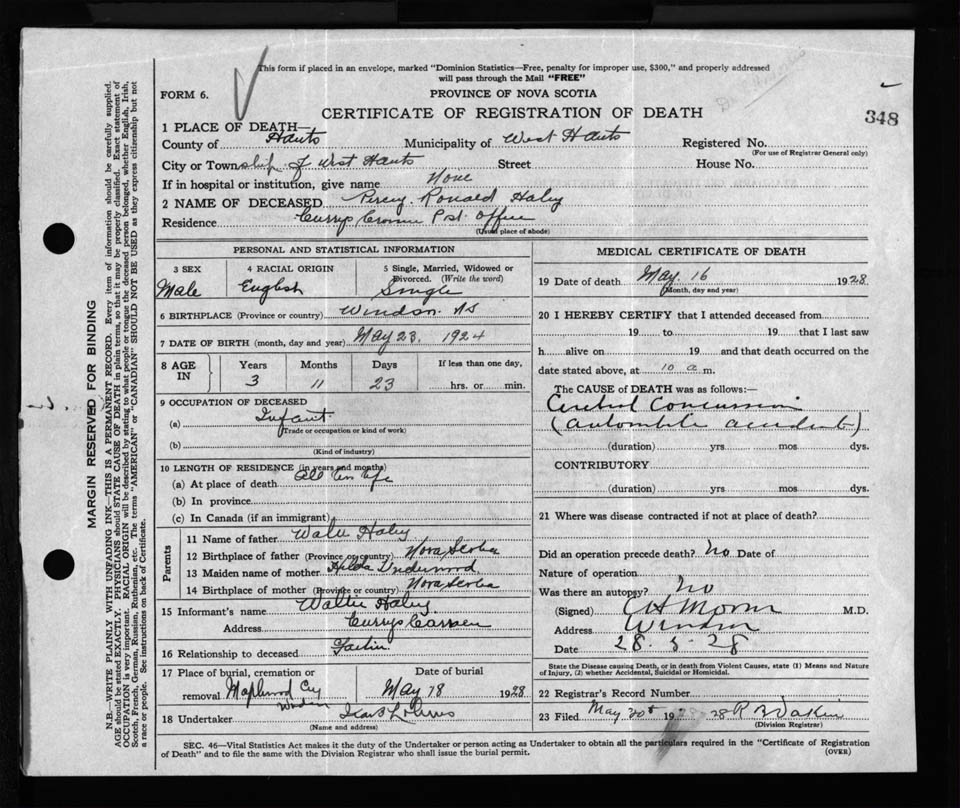 This form if placed in an envelope, marked "Dominion Statistics—Free, penalty for improper use, $300," and properly addressed
will pass through the Mail "FREE"
FORM 6.
PROVINCE OF NOVA SCOTIA
CERTIFICATE OF REGISTRATION OF DEATH
348
1 PLACE OF DEATH—
County of Hants Municipality of West Hants Registered No.
(For use of Registrar General only)
City or Township of West Hants Street House No.
If in hospital or institution, give name None
2 NAME OF DECEASED Percy Ronald Haley
Residence Currys Corner Post Office
(Usual place of abode)
PERSONAL AND STATISTICAL INFORMATION
3 SEX 4 RACIAL ORIGIN 5 Single, Married, Widowed or Divorced. (Write the word)
Male English Single
6 BIRTHPLACE (Province or country) Windsor NS
7 DATE OF BIRTH (month, day and year) May 23, 1924
8 AGE IN Years Months Days If less than one day,
3 11 23 hrs. or min.
9 OCCUPATION OF DECEASED
(a) Infant
(Trade or occupation or kind of work)
(b)
(Kind of industry)
10 LENGTH OF RESIDENCE (in years and months)
(a) At place of death All his life
(b) In province
(c) In Canada (if an immigrant)
Parents
11 Name of father Haley
12 Birthplace of father (Province or country) Nova Scotia
13 Maiden name of mother Hilda Underwood
14 Birthplace of mother (Province or country) Nova Scotia
15 Informant's name Haley
Address Currys Corner
16 Relationship to deceased Father
17 Place of burial, cremation or removal Maplewood Cey Windsor
Date of burial May 18 1928
18 Undertaker
(Name and address)
MEDICAL CERTIFICATE OF DEATH
19 Date of death May 16 1928
(Month, day and year)
20 I HEREBY CERTIFY that I attended deceased from
19 to 19 that I last saw
h alive on 19 and that death occurred on the
date stated above, at 10 a m.
The CAUSE of DEATH was as follows:—
Cerebral Concussion
(automobile accident)
(duration) yrs. mos dys.
CONTRIBUTORY
(duration) yrs mos dys.
21 Where was disease contracted if not at place of death?
Did an operation precede death? No Date of
Nature of operation
Was there an autopsy? No
(Signed) M.D.
Address Windsor
Date 28.5-28
State the Disease causing Death, or in death from Violent Causes, state (1) Means and Nature
of Injury, (2) whether Accidental, Suicidal or Homicidal.
22 Registrar's Record Number
23 Filed May 30th 1928
(Division Registrar)
SEC. 46—Vital Statistics Act makes it the duty of the Undertaker or person acting as Undertaker to obtain all the particulars required in the "Certificate of Registration
of Death" and to file the same with the Division Registrar who shall issue the burial permit.
(OVER)
MARGIN RESERVED FOR BINDING
N.B.—WRITE PLAINLY WITH UNFADING INK—THIS IS A PERMANENT RECORD. Every item of information should be carefully supplied.
AGE should be stated EXACTLY. PHYSICIANS should STATE CAUSE OF DEATH in plain terms, so that it may be properly classified. Exact statement of
OCCUPATION is very important. RACIAL ORIGIN will be described by stating to what people or tongue the deceased person belonged, whether English, Irish,
Scotch, French, German, Russian, Ruthenian, etc. The terms "AMERICAN" or "CANADIAN" SHOULD NOT BE USED as they express citizenship but not
a race or people. See instructions on back of Certificate.